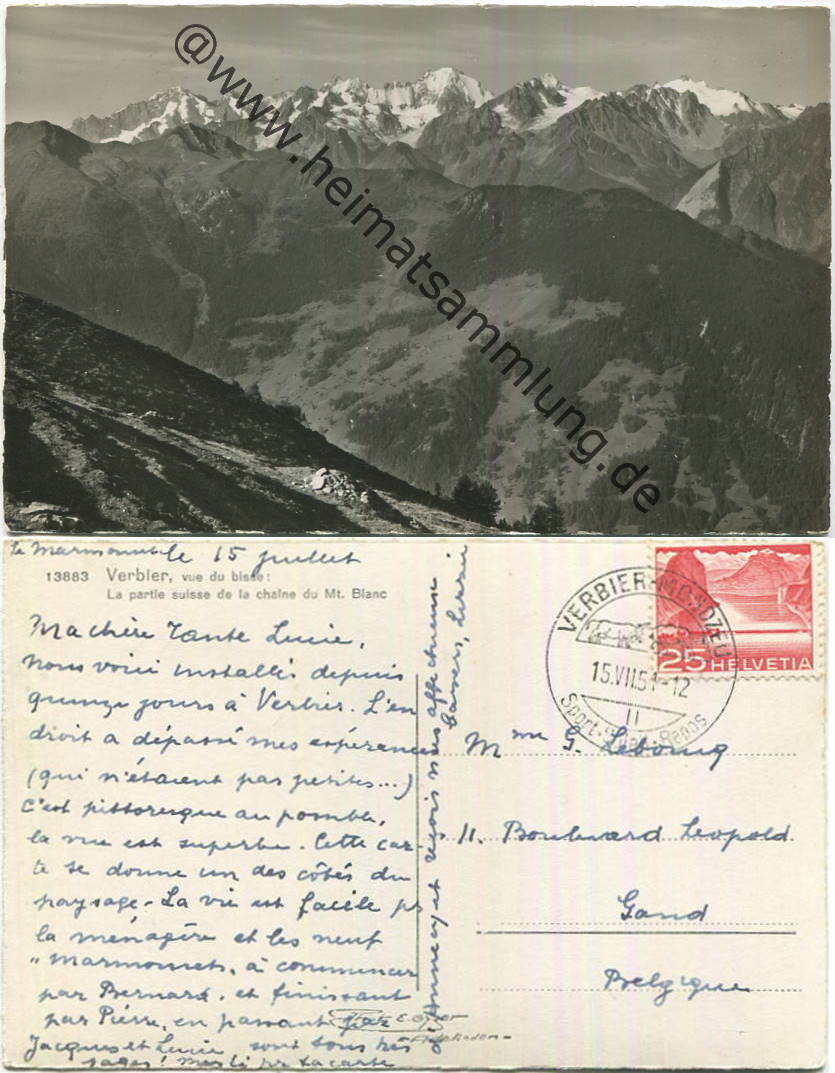 @www.heimatsammlung.de
le 15 juillet
13883 Verbier, vue du bisse:
La partie suisse de la chaîne du Mt. Blanc
Ma chère Tante Lucie,
nous voici installés depuis
quinze jours à Verbier. L'en
droit a dépassé mes espérances
(qui n'étaient pas petites...)
C'est pittoresque au possible,
la vue est superbe. Cette car-
te te donne un des côtés du
paysage - La vie est facile pr
la ménagère et les neuf
"Marmousets, à commencer
par Bernard, et finissant
par Pierre, en passant par
Jacques et Lucie sont très
sages! Merci pr ta carte
d'Annecy et reçois mes affectueux
baisers,
VERBIER-MONDZEU
15.VII.51-12
Sport Repos
25 HELVETIA
Mme G. Lebourg
11. Boulevard Leopold
Gand
Belgique